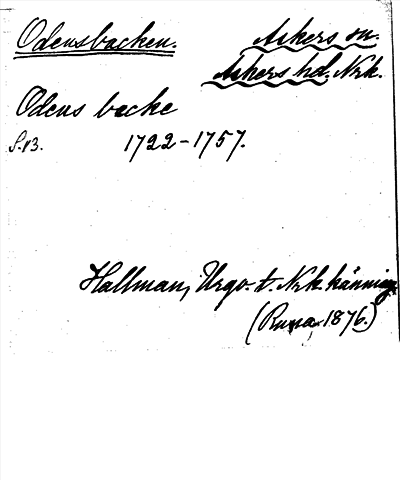 Odensbacken. Askers sn.
Askers hd. Nrk.
Odens backe
S. 13. 1722-1757.
Hallman, Urgv. t. Nrk. känning
(Runa 1876.)